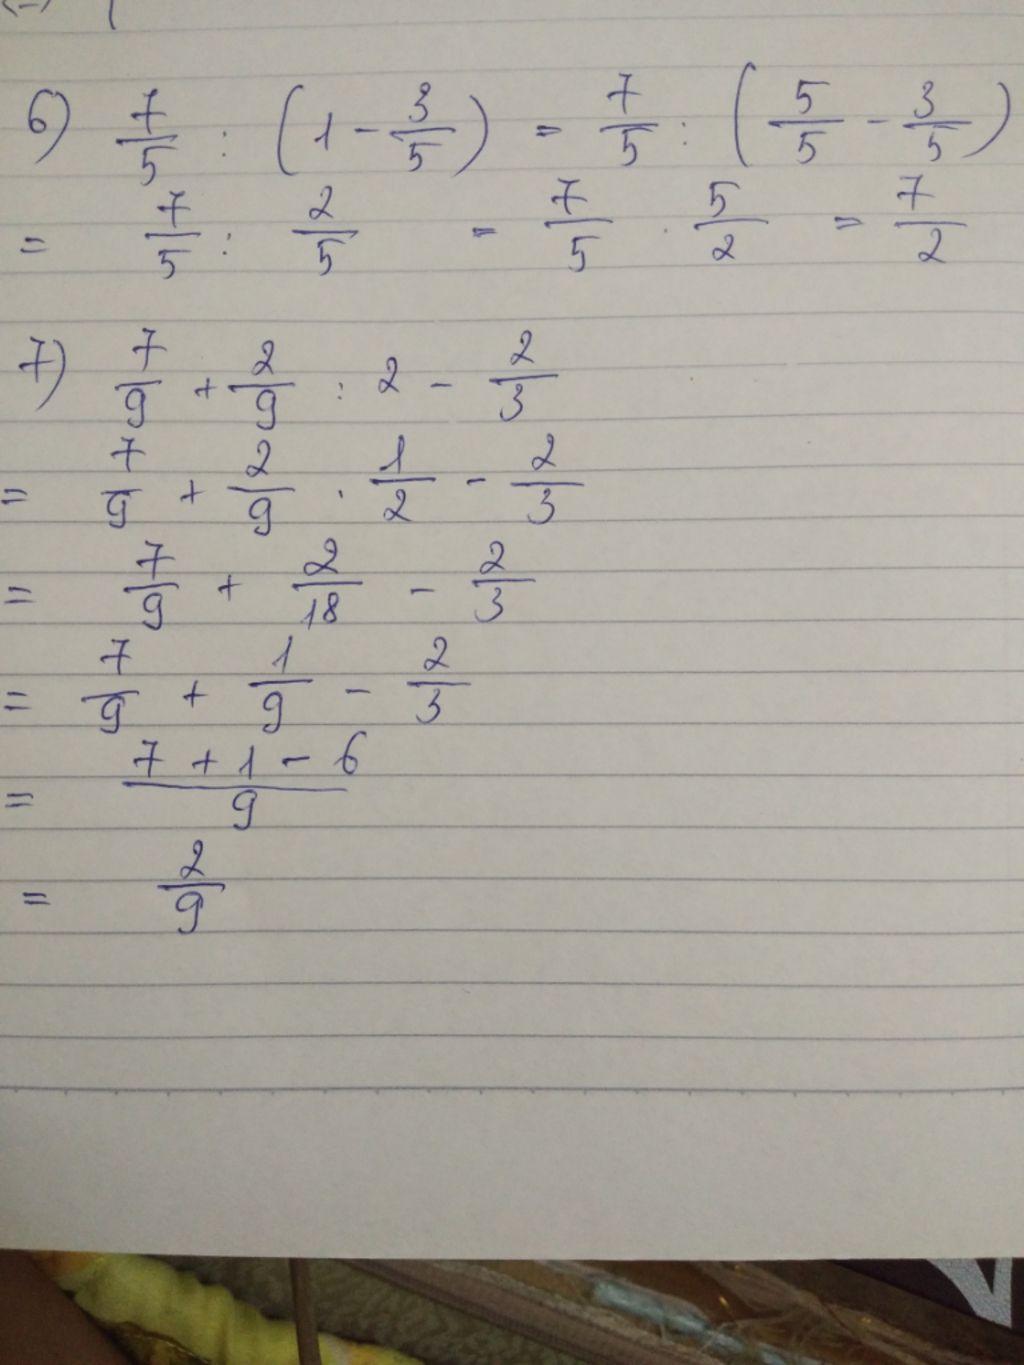 6) 7/5 : (1 - 3/5) = 7/5 : (5/5 - 3/5)
= 7/5 : 2/5 = 7/5 . 5/2 = 7/2
7) 7/9 + 2/9 : 2 - 2/3
= 7/9 + 2/9 . 1/2 - 2/3
= 7/9 + 2/18 - 2/3
= 7/9 + 1/9 - 2/3
= (7 + 1 - 6)/9
= 2/9